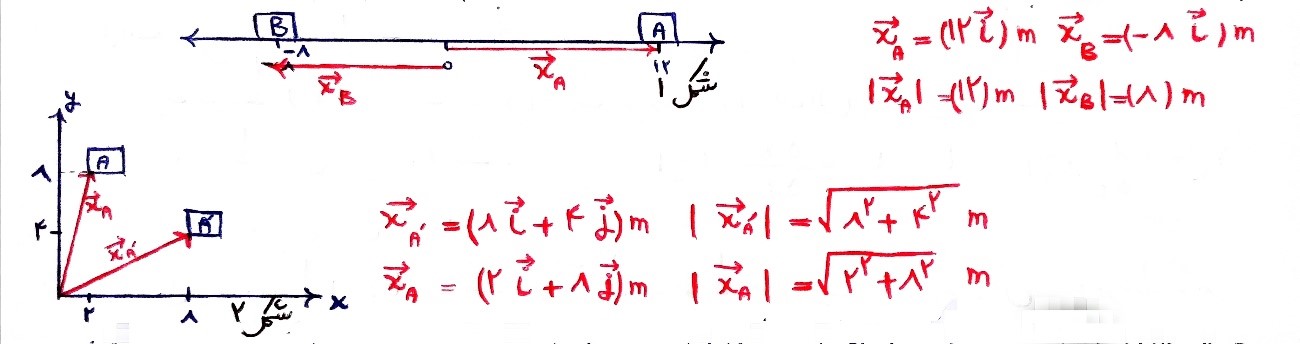 B A
-۸ ۰ ۱۲
x⃗_B x⃗_A
شکل ۱
x⃗_A = (۱۲ i⃗) m x⃗_B = (-۸ i⃗) m
|x⃗_A| = (۱۲) m |x⃗_B| = (۸) m
y
A
۸
x⃗_A
A′
۴
x⃗_A′
۲ ۸ x
شکل ۲
x⃗_A′ = (۸ i⃗ + ۴ j⃗) m |x⃗_A′| = √(۸^۲ + ۴^۲) m
x⃗_A = (۲ i⃗ + ۸ j⃗) m |x⃗_A| = √(۲^۲ + ۸^۲) m